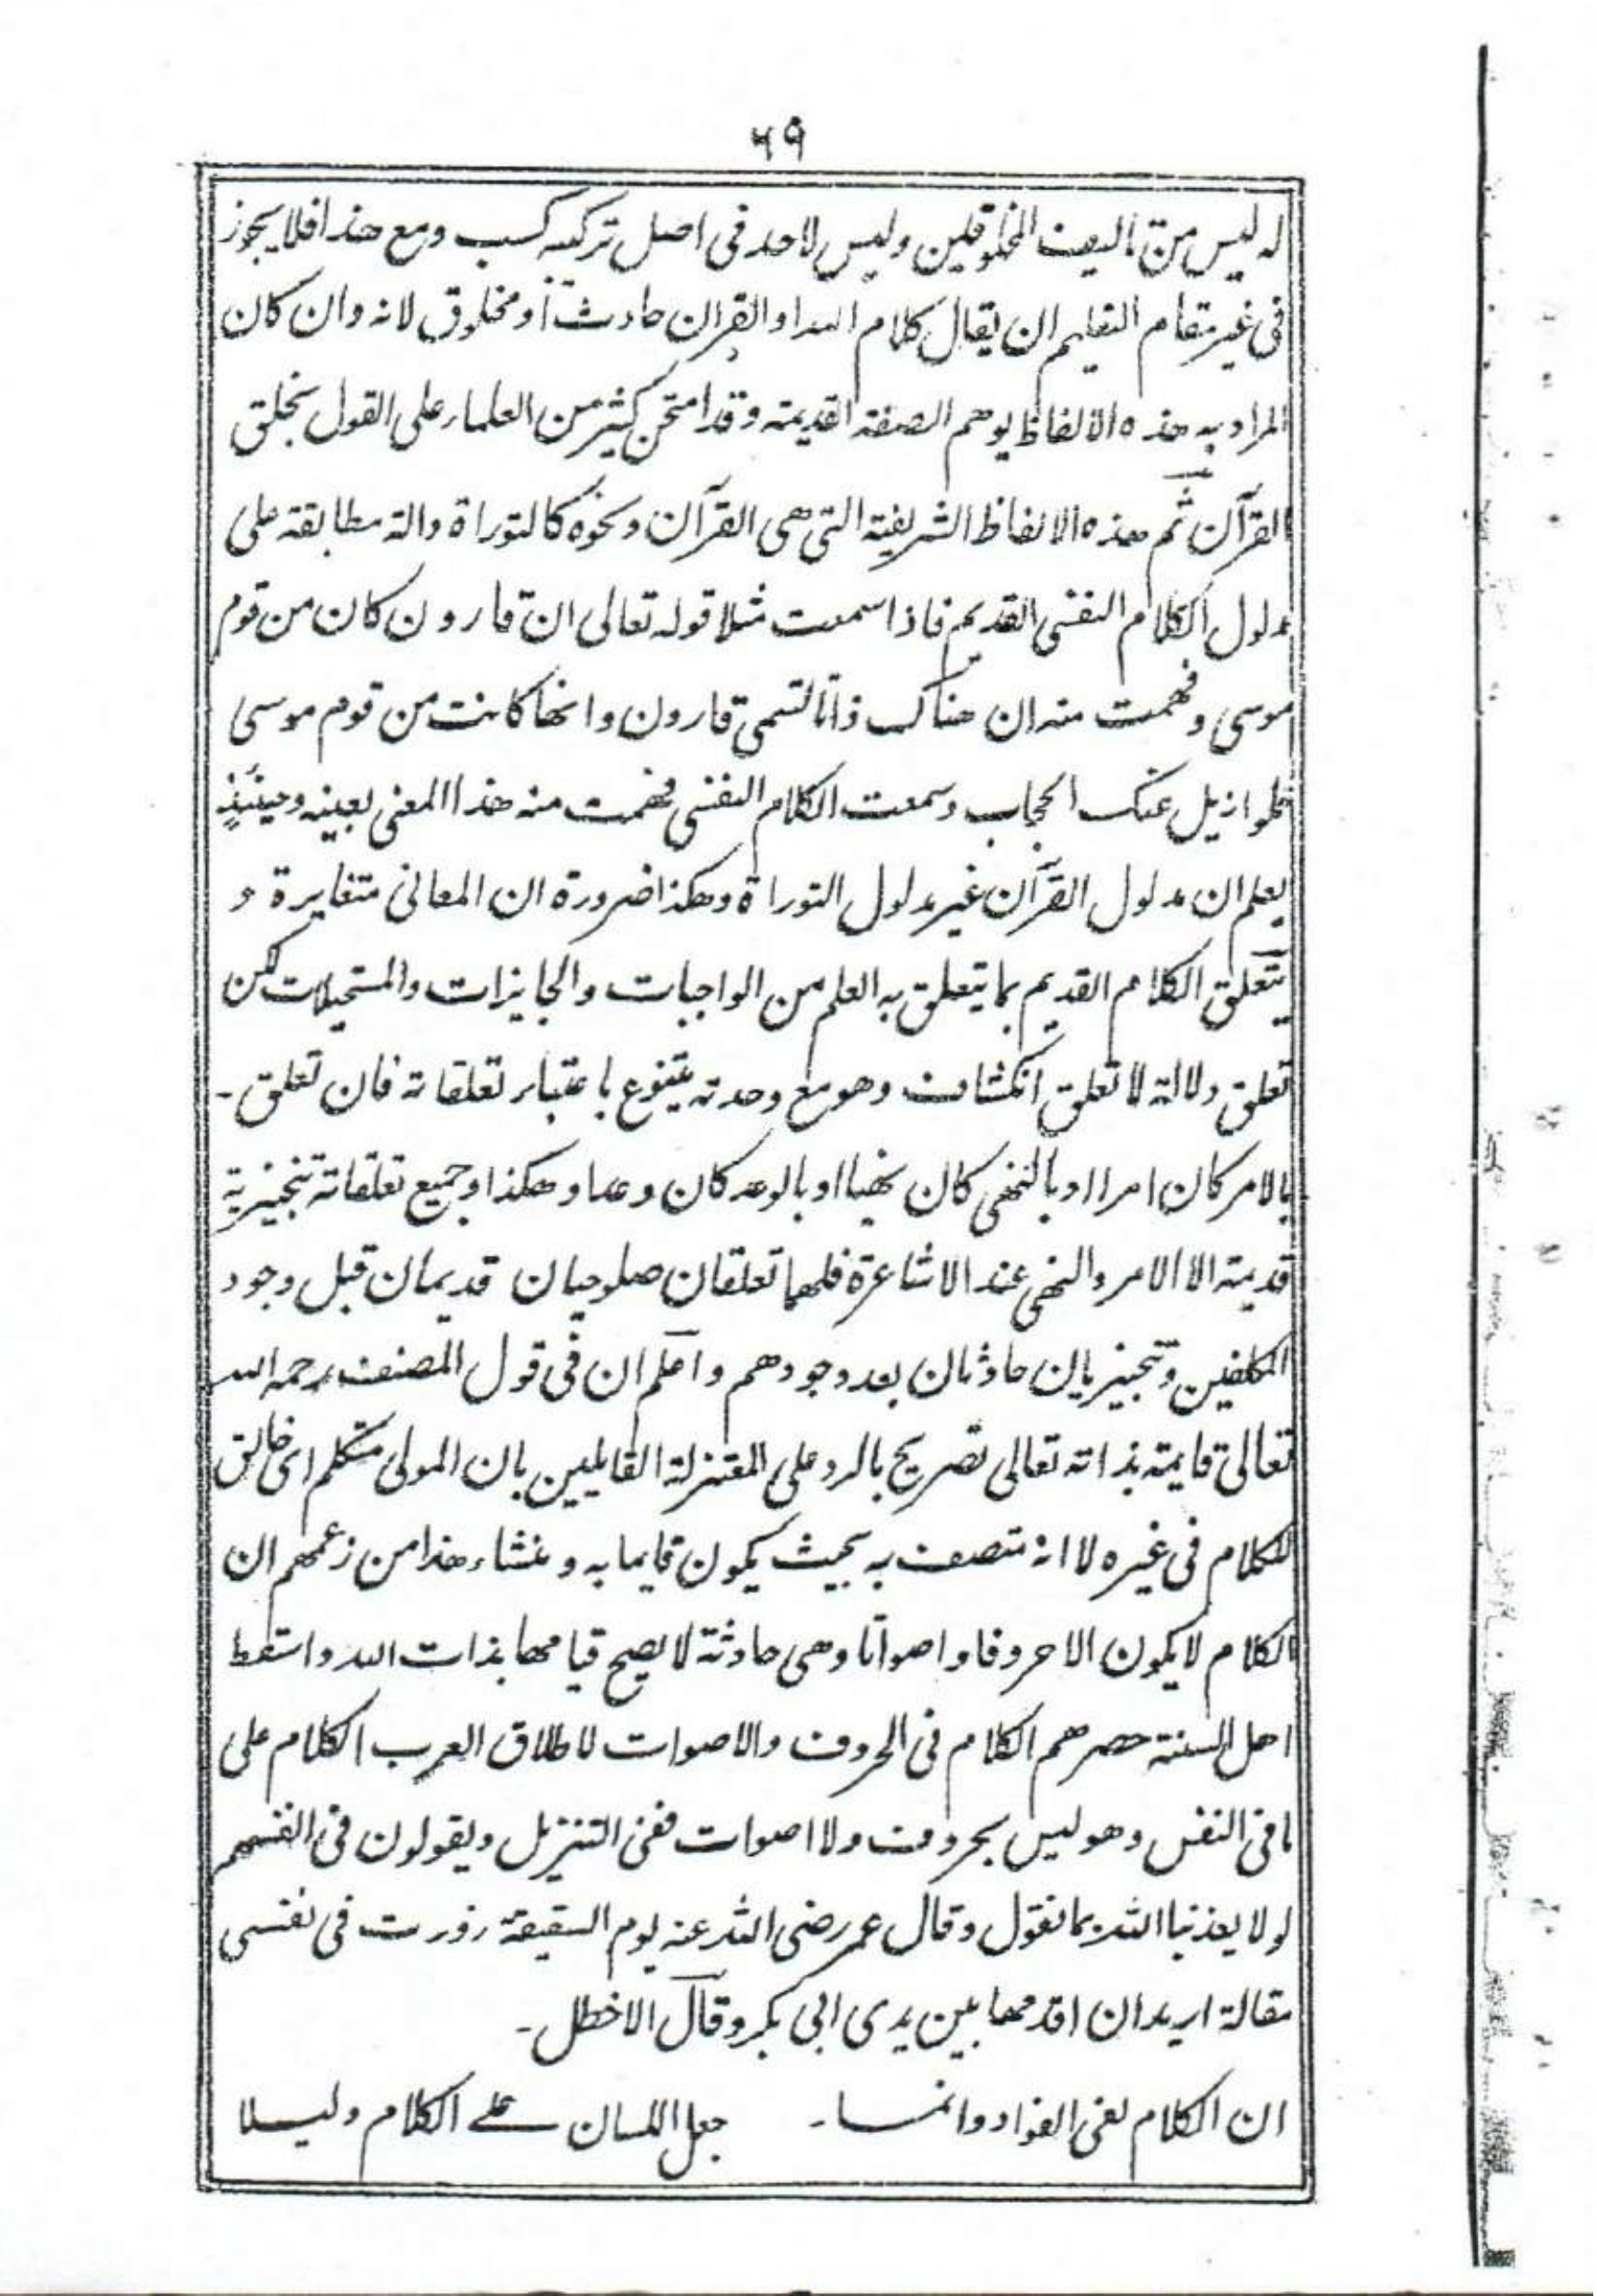 ٦٩
له ليس من تاليف المخلوقين وليس لاحد فى اصل تركيبه كسب ومع هذا فلا يجوز
فى غير مقام التعليم ان يقال كلام الله او القران حادث او مخلوق لانه وان كان
المراد به هذه الالفاظ يوهم الصفة القديمة وقد امتحن كثير من العلماء على القول بخلق
القرآن ثم هذه الالفاظ الشريفة التى هى القرآن ونحوه كالتوراة دالة مطابقة على
مدلول الكلام النفسى القديم فاذا سمعت مثلا قوله تعالى ان قارون كان من قوم
موسى وفهمت منه ان هناك ذاتا تسمى قارون وانها كانت من قوم موسى
فلو ازيل عنك الحجاب وسمعت الكلام النفسى فهمت منه هذا المعنى بعينه وحينئذٍ
يعلم ان مدلول القرآن غير مدلول التوراة وهكذا ضرورة ان المعانى متغايرة و
يتعلق الكلام القديم بما يتعلق به العلم من الواجبات والجايزات والمستحيلات لكن
تعلق دلالة لا تعلق انكشاف وهو مع وحدته يتنوع باعتبار تعلقاته فان تعلق -
بالامر كان امرا او بالنهى كان نهيا او بالوعد كان وعدا وهكذا وجميع تعلقاته تنجيزية
قديمة الا الامر والنهى عند الاشاعرة فلهما تعلقان صلوحيان قديمان قبل وجود
المكلفين وتنجيزيان حادثان بعد وجودهم واعلم ان فى قول المصنف رحمه الله
تعالى قايمة بذاته تعالى تصريح بالرد على المعتزلة القايلين بان المولى متكلم اى خالق
للكلام فى غيره لا انه متصف به بحيث يكون قايما به ومنشاء هذا من زعمهم ان
الكلام لا يكون الا حروفا واصواتا وهى حادثة لا يصح قيامها بذات الله واسقط
اهل السنة حصرهم الكلام فى الحروف والاصوات لاطلاق العرب الكلام على
ما فى النفس وهو ليس بحروف ولا اصوات ففى التنزيل ويقولون فى انفسهم
لولا يعذبنا الله بما نقول وقال عمر رضى الله عنه يوم السقيفة زورت فى نفسى
مقالة اريد ان اقدمها بين يدى ابى بكر وقال الاخطل -
ان الكلام لفى الفواد وانما - جعل اللسان على الكلام دليلا